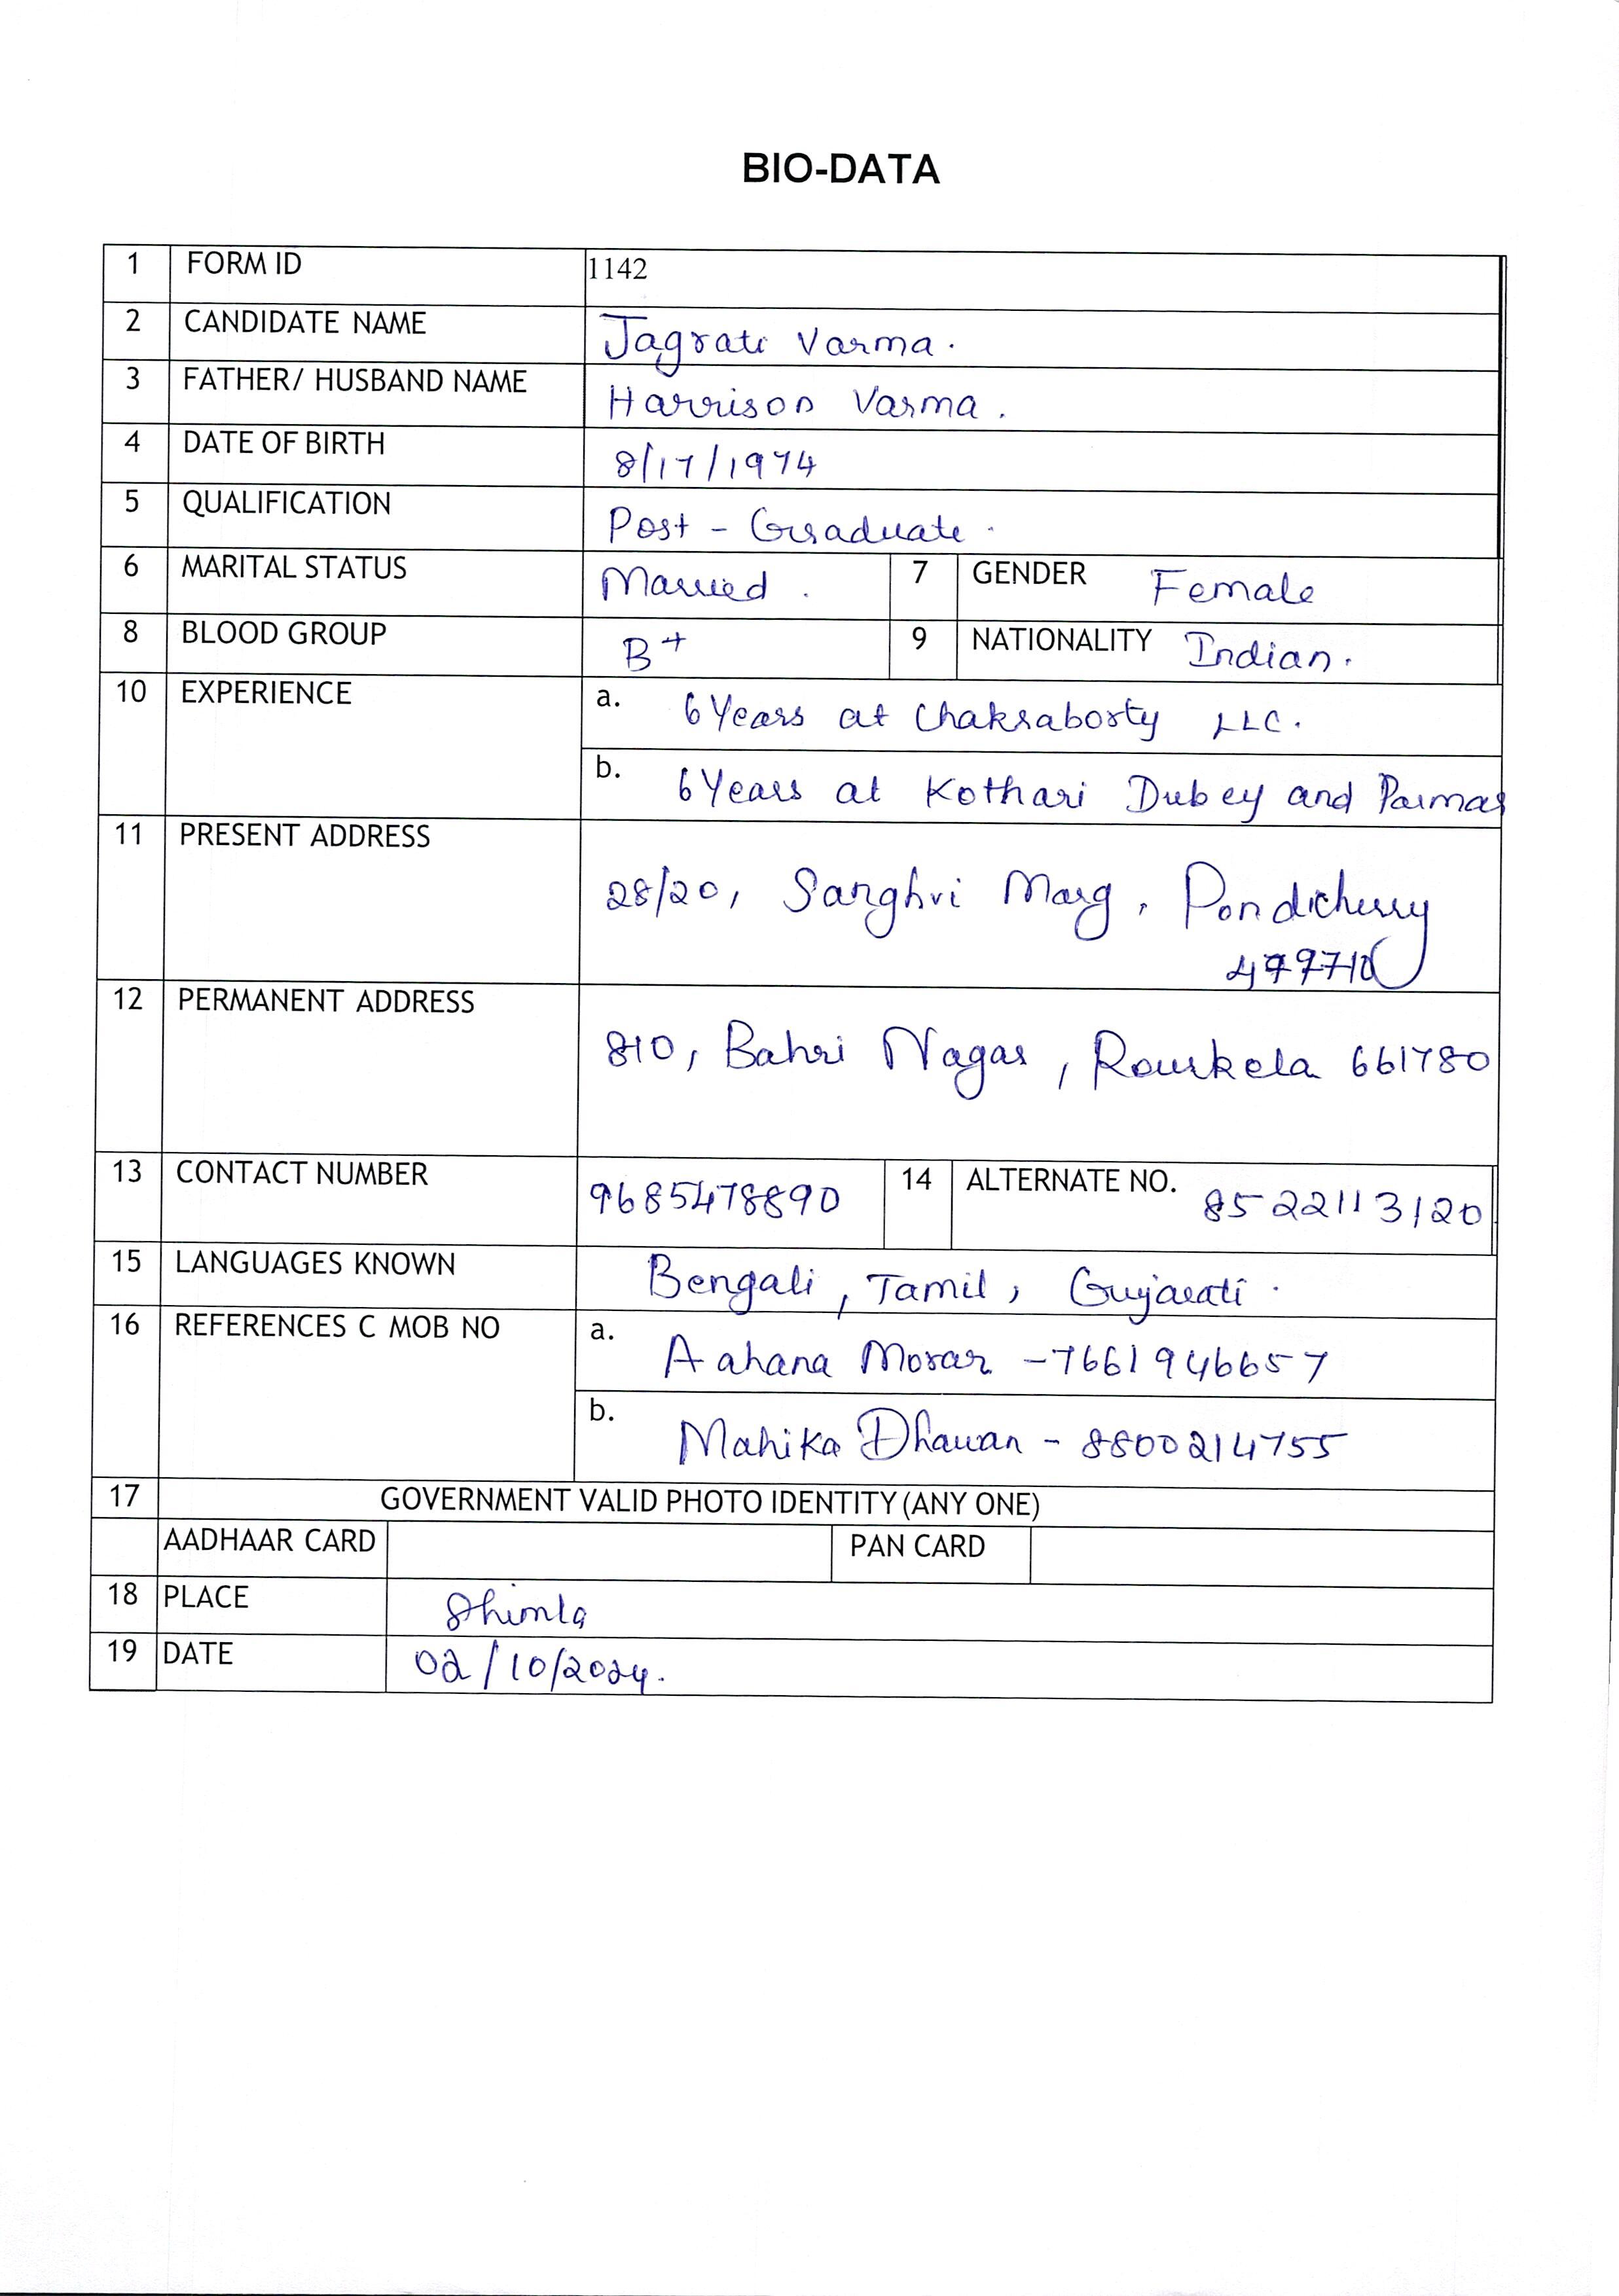 BIO-DATA
1 FORM ID 1142
2 CANDIDATE NAME Jagrati Varma.
3 FATHER/ HUSBAND NAME Harrison Varma.
4 DATE OF BIRTH 8/17/1974
5 QUALIFICATION Post - Graduate.
6 MARITAL STATUS Married. 7 GENDER Female
8 BLOOD GROUP B+ 9 NATIONALITY Indian.
10 EXPERIENCE a. 6 Years at Chakraborty LLC.
b. 6 Years at Kothari Dubey and Parmar
11 PRESENT ADDRESS
28/20, Sanghvi Marg, Pondicherry
12 PERMANENT ADDRESS
810, Bahri Nagar, Rourkela 661780
13 CONTACT NUMBER 9685478890 14 ALTERNATE NO. 8522113120
15 LANGUAGES KNOWN Bengali, Tamil, Gujarati.
16 REFERENCES C MOB NO a. Aahana Morar - 7661946657
b. Mahika Dhawan - 8800214755
17 GOVERNMENT VALID PHOTO IDENTITY (ANY ONE)
AADHAAR CARD PAN CARD
18 PLACE Shimla
19 DATE 02/10/2024.